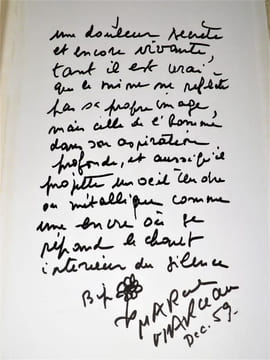 une douleur secrète
et encore vivante,
tant il est vrai
que le mime ne reflète
pas sa propre image,
mais celle de l'homme
dans son aspiration
profonde, et aussi qu'il
projette un oeil tendre
ou métallique comme
une encre où se
répand le chant
intérieur du silence
Bip
MARCEL
MARCEAU
Dec. 59.